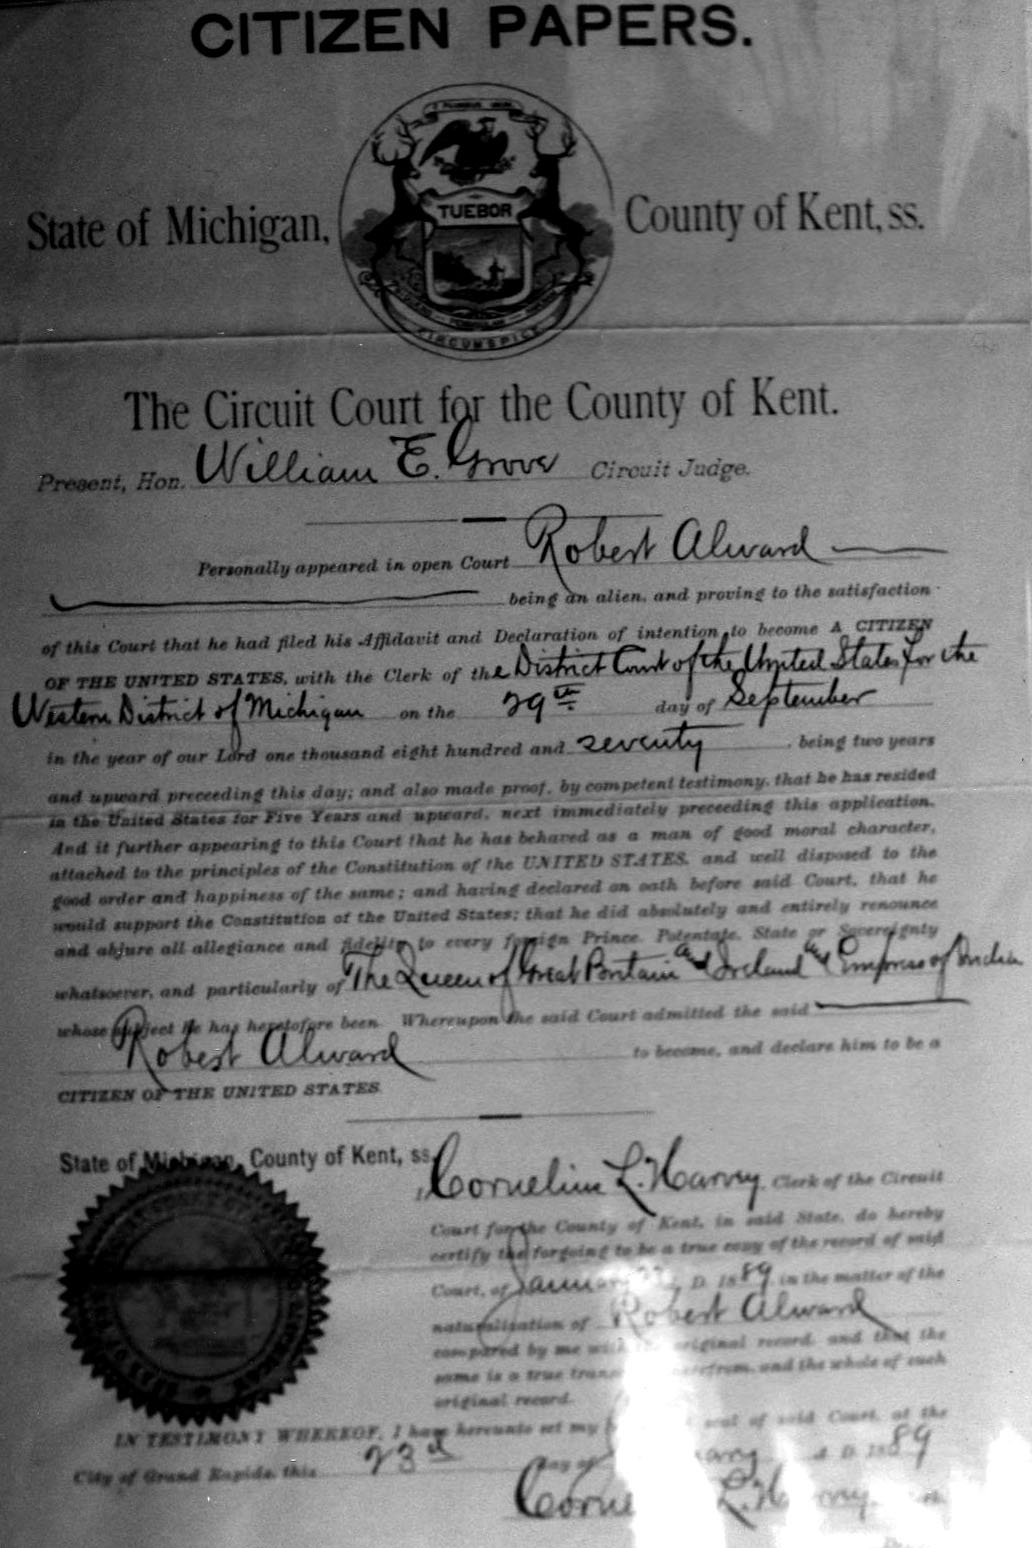 CITIZEN PAPERS.
E PLURIBUS UNUM
State of Michigan,
TUEBOR
County of Kent, ss.
CIRCUMSPICE
The Circuit Court for the County of Kent.
Present, Hon. William E. Grove Circuit Judge.
Personally appeared in open Court Robert Alward
being an alien, and proving to the satisfaction
of this Court that he had filed his Affidavit and Declaration of intention to become A CITIZEN
OF THE UNITED STATES, with the Clerk of the District Court of the United States for the
Western District of Michigan on the 29th day of September
in the year of our Lord one thousand eight hundred and seventy, being two years
and upward preceeding this day; and also made proof, by competent testimony, that he has resided
in the United States for Five Years and upward, next immediately preceeding this application.
And it further appearing to this Court that he has behaved as a man of good moral character,
attached to the principles of the Constitution of the UNITED STATES, and well disposed to the
good order and happiness of the same; and having declared on oath before said Court, that he
would support the Constitution of the United States; that he did absolutely and entirely renounce
and abjure all allegiance and fidelity to every foreign Prince, Potentate, State or Sovereignty
whatsoever, and particularly of The Queen of Great Britain and Ireland and Empress of India
whose subject he has heretofore been. Whereupon the said Court admitted the said
Robert Alward to become, and declare him to be a
CITIZEN OF THE UNITED STATES.
State of Michigan, County of Kent, ss.
I, Cornelius L. Harvey Clerk of the Circuit
Court for the County of Kent, in said State, do hereby
certify the forgoing to be a true copy of the record of said
Court, of January D. 1889 in the matter of the
naturalization of Robert Alward
compared by me with original record, and that the
same is a true and the whole of such
original record.
IN TESTIMONY WHEREOF, I have hereunto set my seal of said Court, at the
City of Grand Rapids, this 23d day of A. D. 1889
Corne L. Harvey